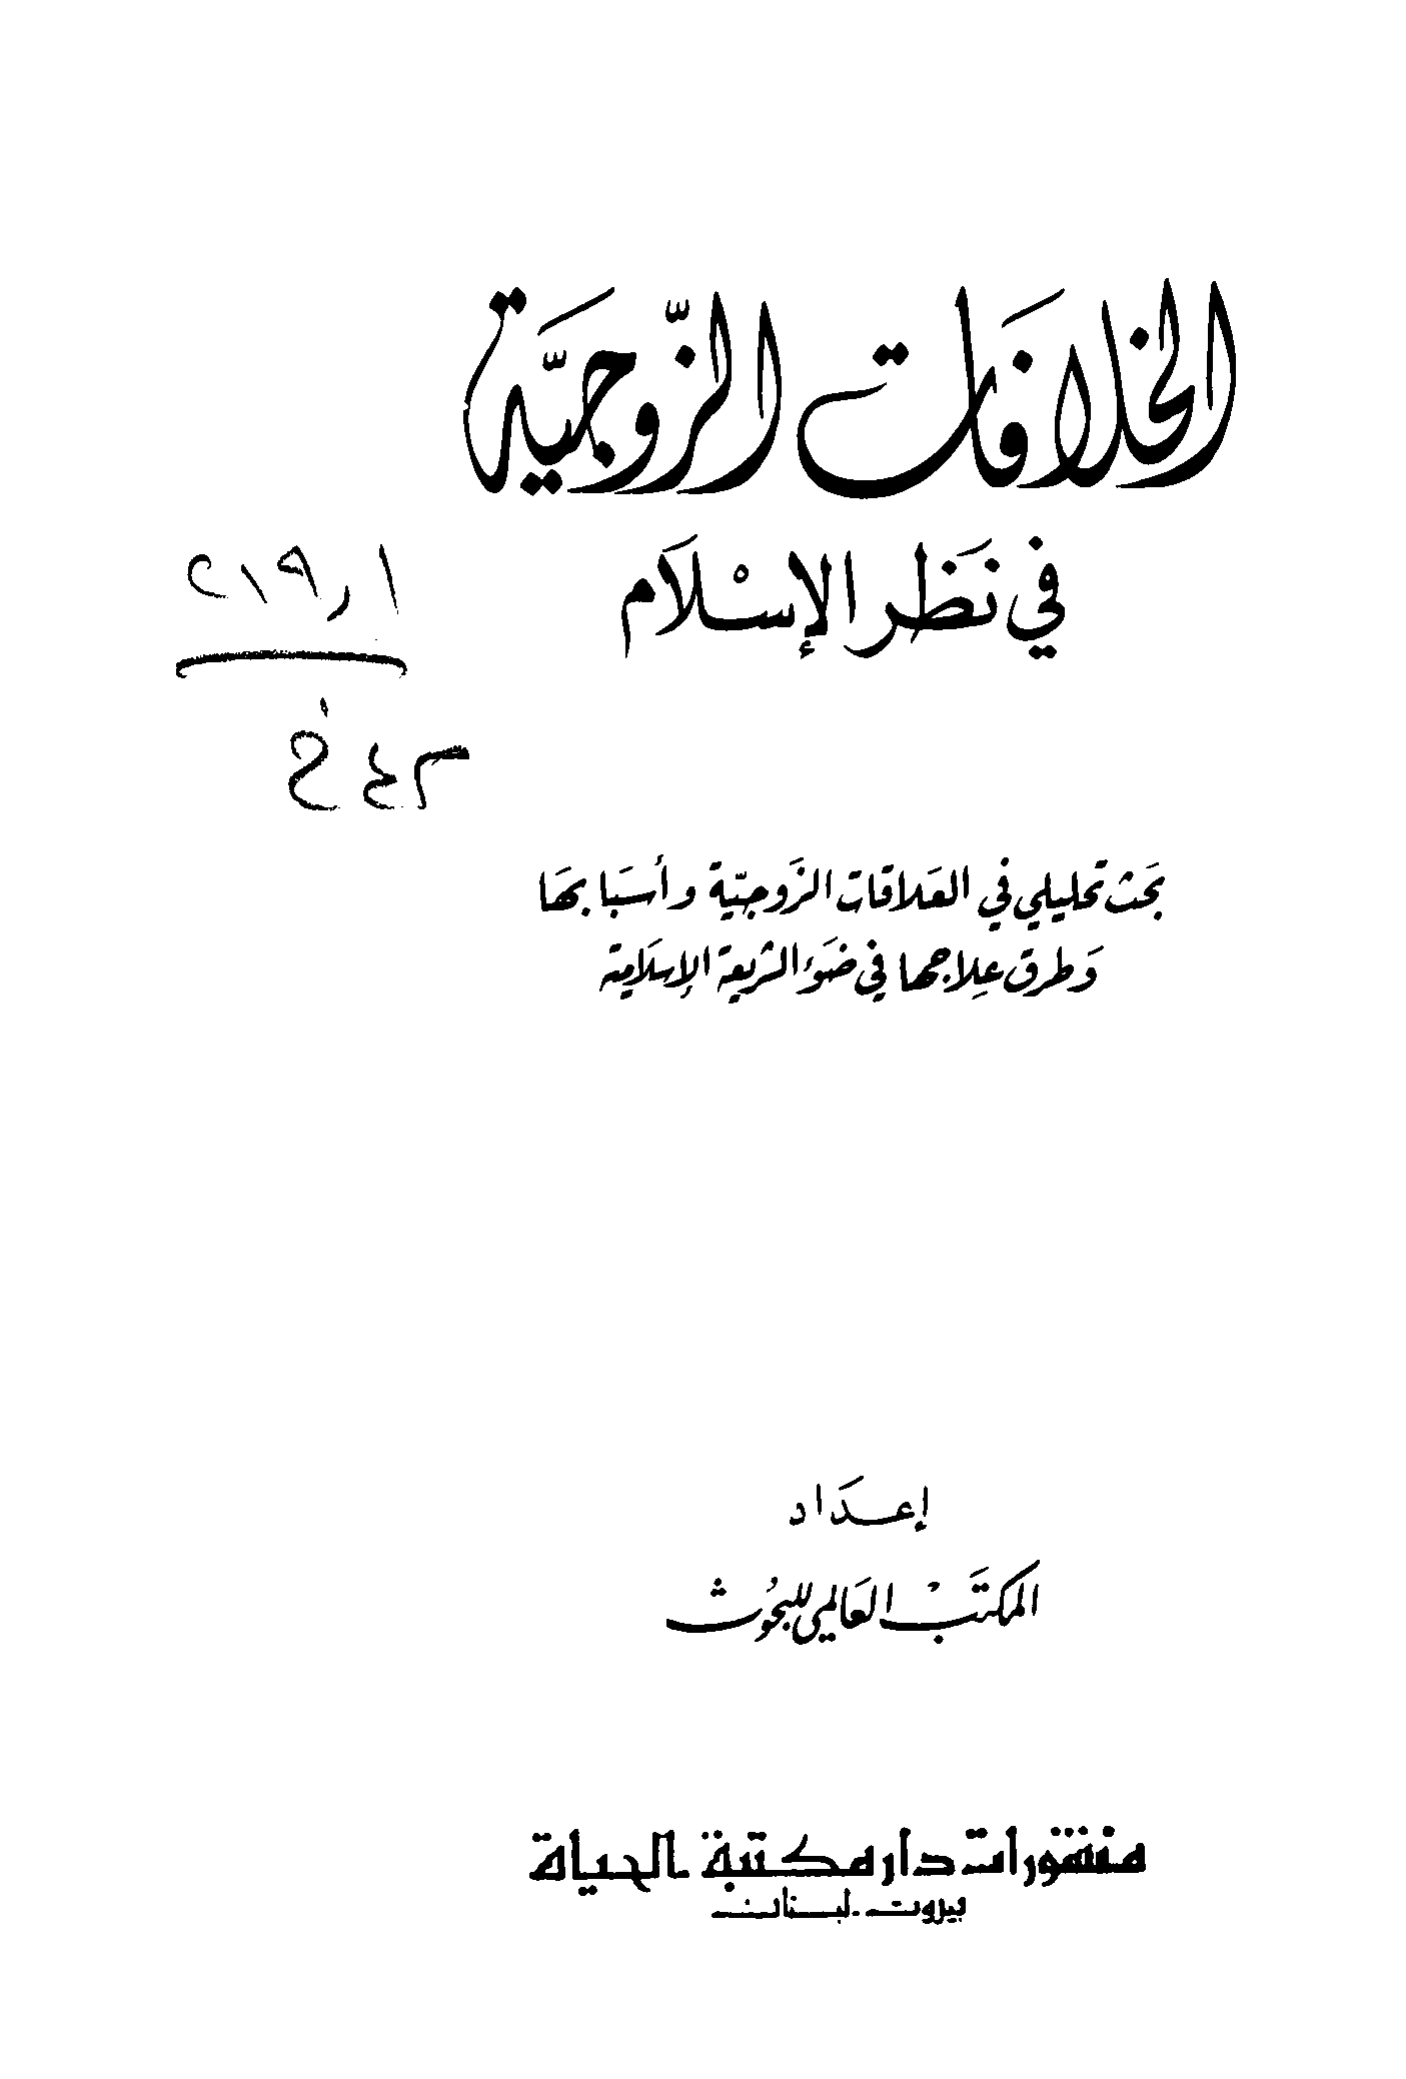 الخلافَات الزّوجيَّة
في نَظر الإسْلاَم
٢١٩٫١
بحَث تحليلي في العَلاقات الزَوجيّة وأسبَابهَا
وَطرق عِلاجها في ضَوء الشريعة الإسلامية
إعدَاد
المكتَبْ العَالمي للبحُوث
منشورات دار مكتبة الحياة
بيروت - لبنان